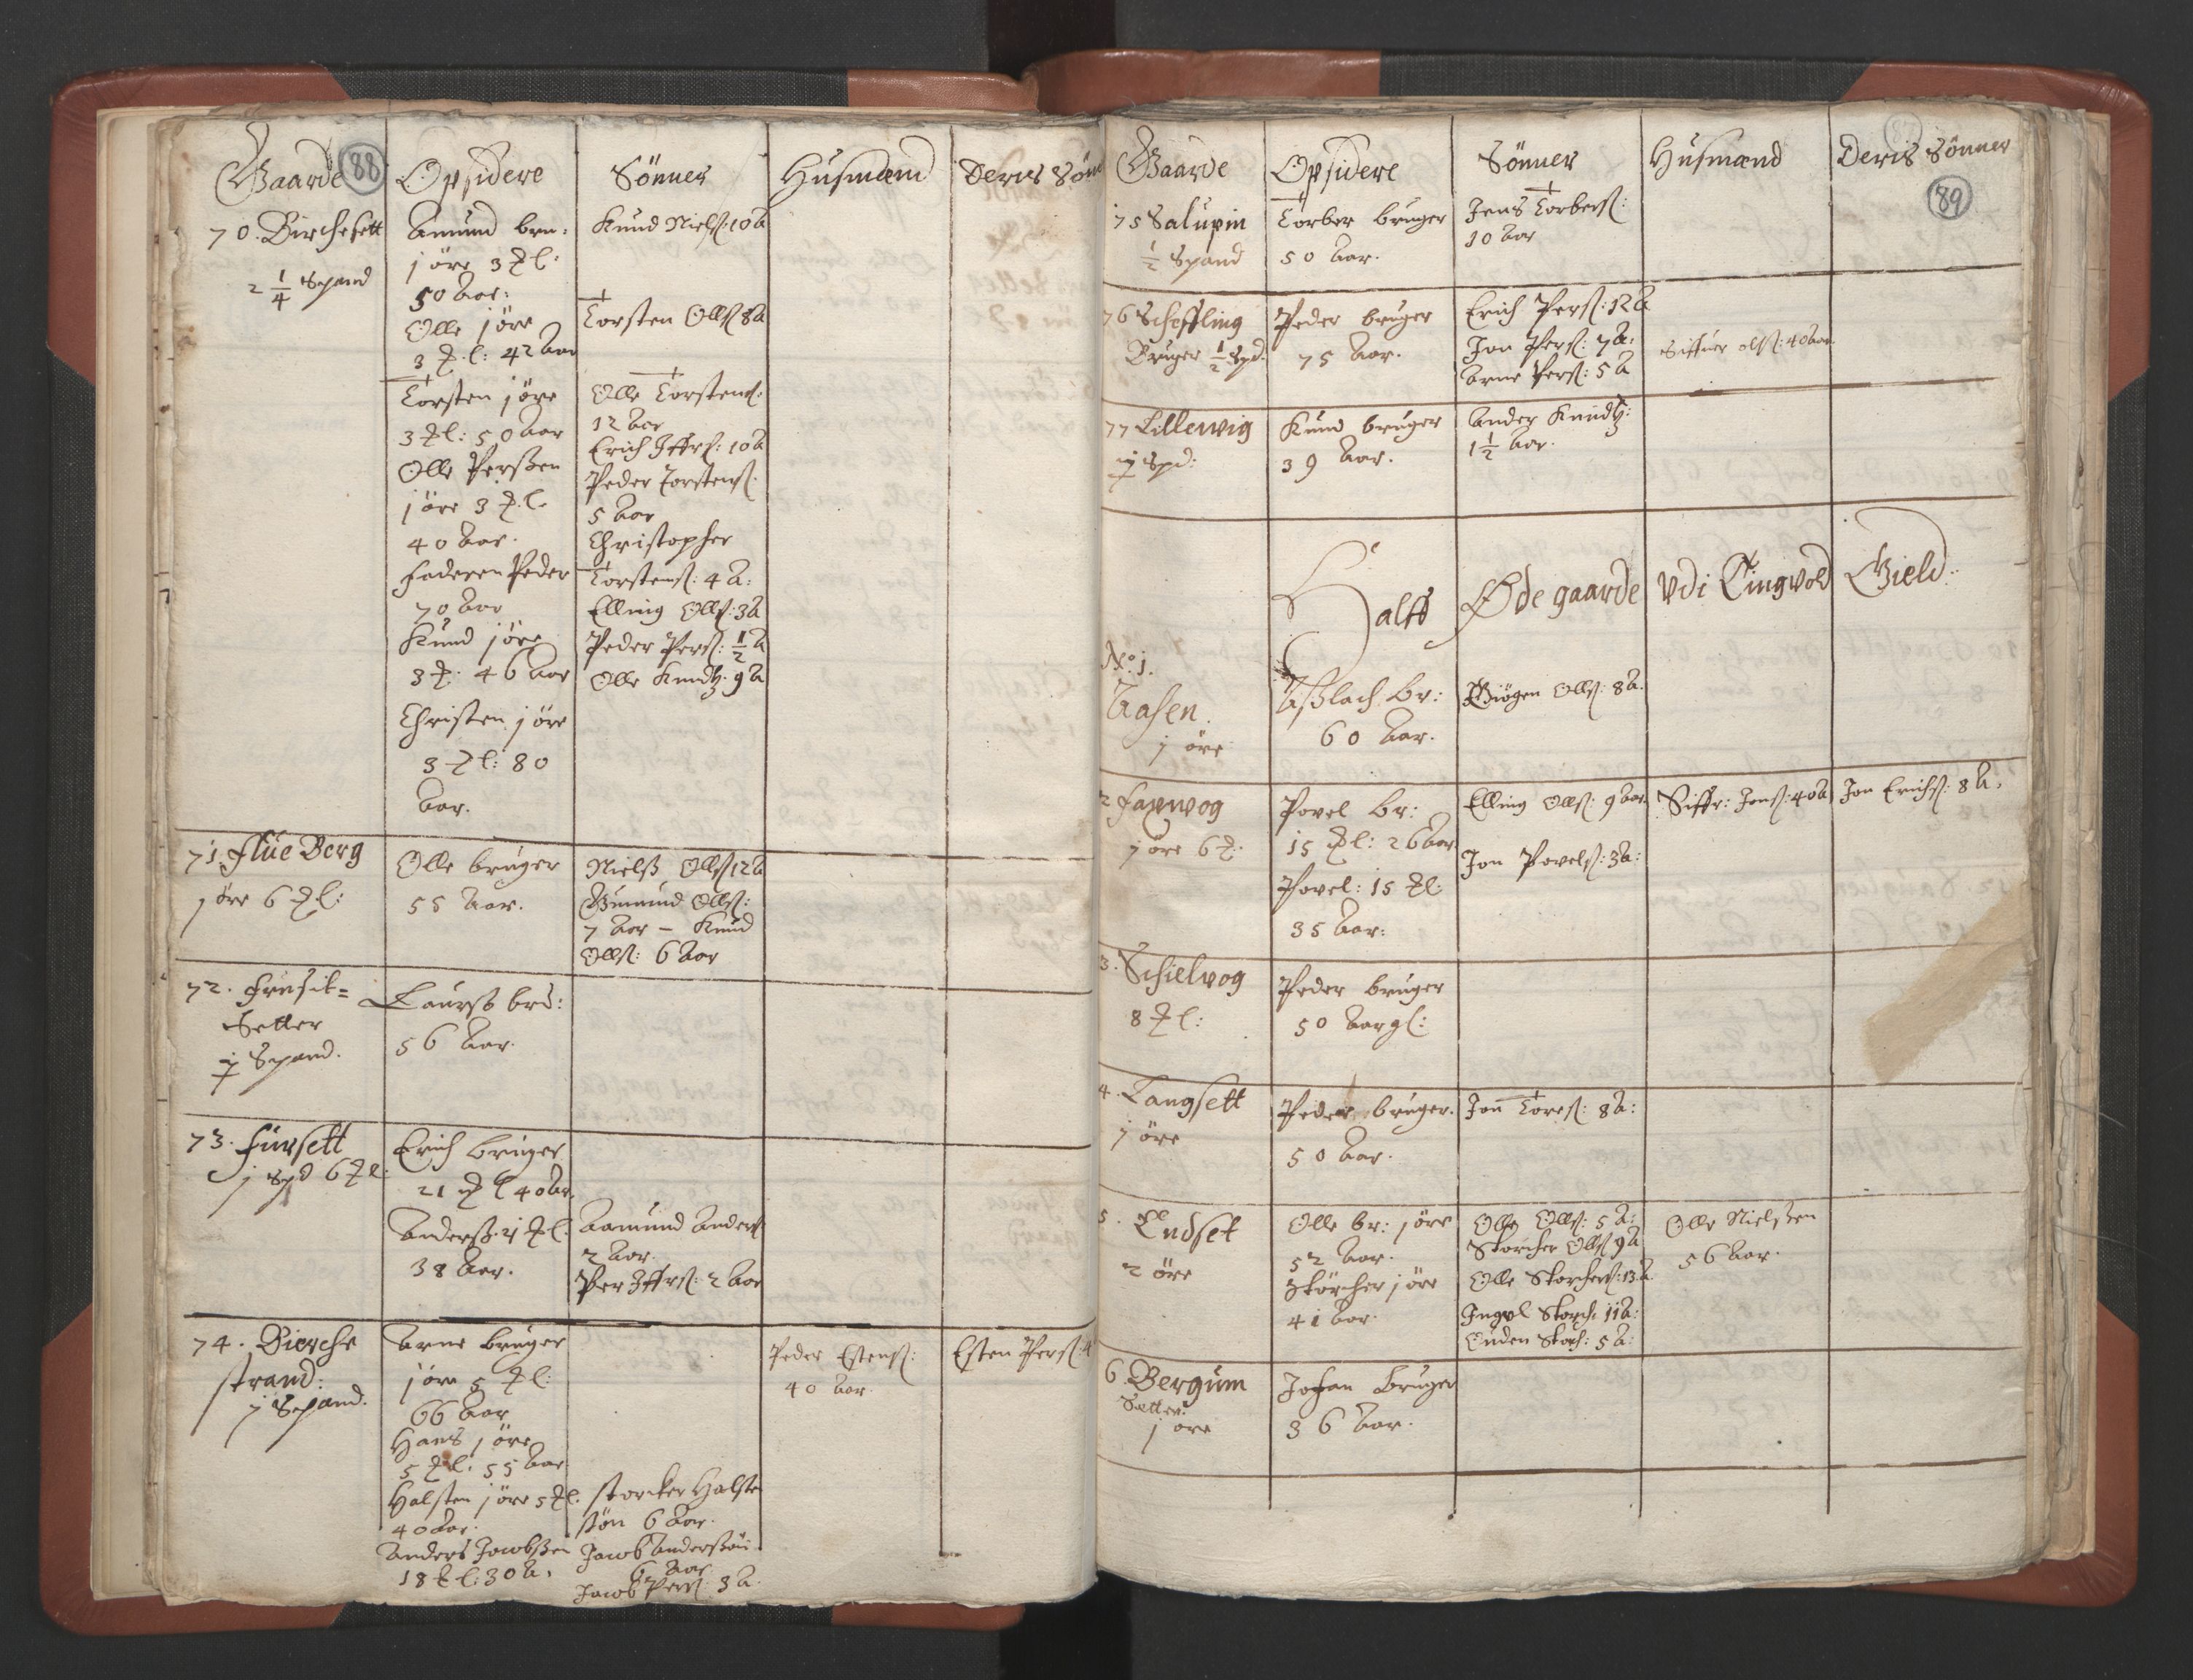 88
Gaarde Opsidere Sönner Husmænd Deris Sön
70. Birchesett
2 1/4 Spand
Amund bru:
j öre 3 ℔l:
50 Aar:
Olle j öre
3 ℔l: 42 Aar
Torsten j öre
3 ℔l: 50 Aar
Olle Perßen
j öre 3 ℔l.
40 Aar.
Faderen Peder
70 Aar
Knud j öre
3 ℔: 46 Aar
Christen j öre
3 ℔l: 80
Aar.
Knud Nielß: 10 A
Torsten Ollß 8 A
Olle Torstenß.
12 Aar
Erich Iffrß: 10 A
Peder Torstenß.
5 Aar
Christopher
Torstenß: 4 A:
Elling Ollß: 3 A
Peder Perß: 1/2 A
Olle Knudtz. 9 A
71. Flüe Berg
j öre 6 ℔l:
Olle bruger
55 Aar.
Nielß Ollß 12 A
Gumund Ollß:
7 Aar – Knud
Ollß: 6 Aar
72.
Setter
j Spand.
Laurß bru:
56 Aar.
73. Furset
j Spd 6 ℔l
Erich bruger
21 ℔l 40 Aar.
Anderß. 21 ℔l.
38 Aar.
Aamund Anderß
2 Aar.
Per Iffrß: 2 Aar
74. Bierche
strand:
j Spand.
Arne bruger
j öre 5 ℔l:
66 Aar
Hans j öre
5 ℔l: 55 Aar
Halsten j öre 5 ℔l.
40 Aar:
Anders Jacobßen
18 ℔l: 30 A.
storcker Halste
ßön 6 Aar.
Jacob Anderßön
6 Aar
Jacob Perß: 3 A.
Peder Estenß:
40 Aar.
Esten Perß: 4
89
Gaarde Opsidere Sönner Husmænd Deris Sönner
75 Salupin
1/2 Spand
Torber bruger
50 Aar.
Jens Torberß:
10 Aar
76 Scheffling
Bruger 1/2 Spd.
Peder bruger
75 Aar.
Erich Perß: 12 A
Jon Perß: 7 A:
Arne Perß: 5 A
Siffuer olß: 40 aar.
77 Lillewig
j Spd:
Knud bruger
39 Aar.
Ander Knudtz:
1 1/2 Aar.
Halff Øde gaarde Vdi Tingvold Gield:
No: 1.
Aasen.
j öre
Aßlach br:
60 Aar.
Biögen Ollß: 8 A.
2 Faxvog
j öre 6 ℔:
Povel br:
15 ℔l: 26 Aar
Povel: 15 ℔l:
35 Aar:
Elling Ollß: 9 Aar.
Jon Povelß: 3 A:
Siffr: Jonß: 40 A
Jon Erichß: 8 A.
3. Schielvog
8 ℔l:
Peder bruger
50 Aar gl:
4. Langsett
j öre
Peder bruger.
50 Aar.
Jon Toreß: 8 A:
5. Endset
2 öre
Olle br: j öre
52 Aar.
Störcher j öre
41 Aar.
Olle Ollß: 5 A:
Storcher Ollß 9 A
Olle Storcherß: 13 A
Ingvl Storch: 11 A:
Enden Storch: 5 A:
Olle Nielßen
56 Aar.
6. Bergum
Setter:
j öre
Johan bruger
36 Aar.